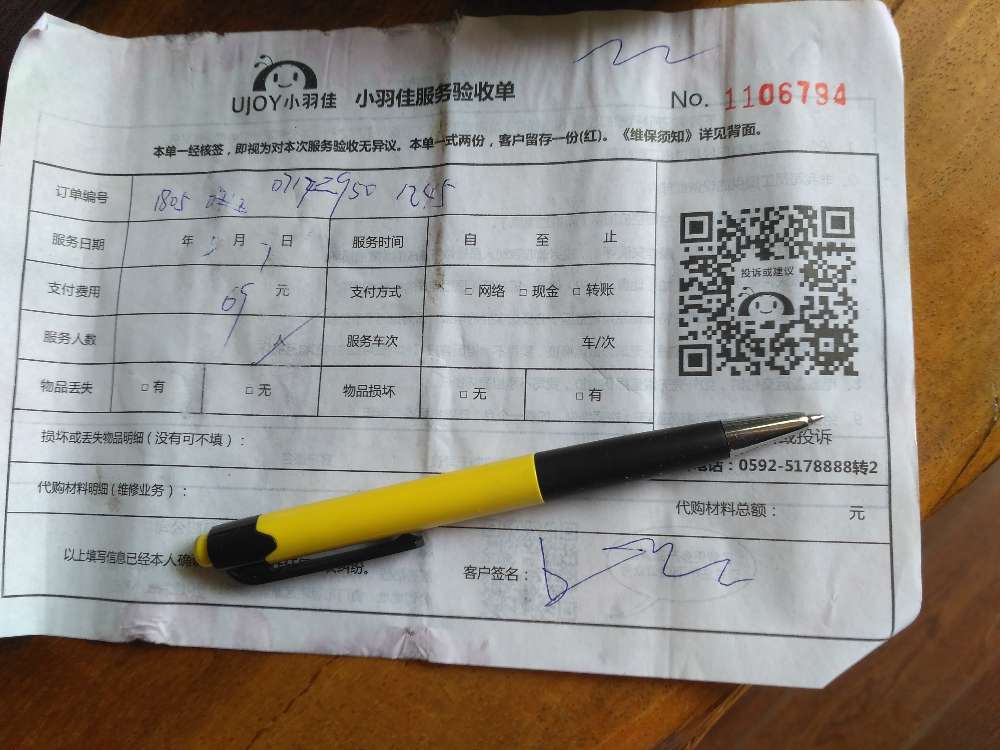 UJOY小羽佳 小羽佳服务验收单
No. 1106794
本单一经核签，即视为对本次服务验收无异议。本单一式两份，客户留存一份(红)。《维保须知》详见背面。
订单编号 1805 1245
服务日期 年 月 日 服务时间 自 至 止
支付费用 元 支付方式 □ 网络 □ 现金 □ 转账
服务人数 人 服务车次 车/次
物品丢失 □ 有 □ 无 物品损坏 □ 无 □ 有
投诉或建议
损坏或丢失物品明细（没有可不填）：
或投诉
电话：0592-5178888转2
代购材料明细（维修业务）：
代购材料总额： 元
以上填写信息已经本人确 纠纷。
客户签名：